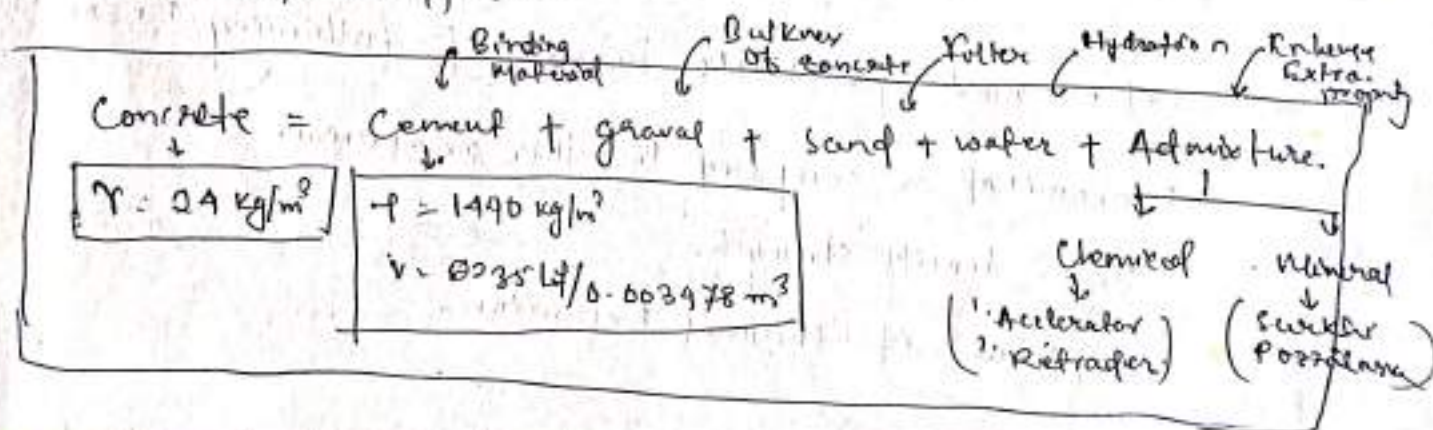 Binding Material
Bulkness of concrete
Filler
Hydration
Enhance Extra. property
Concrete = Cement + graval + sand + water + Admixture.
γ = 24 kg/m³
ρ = 1440 kg/m³
v = 35 Lit/0.003478 m³
Chemical
Mineral
1. Acelerator
2. Retrader
Surkhi
Pozzolana